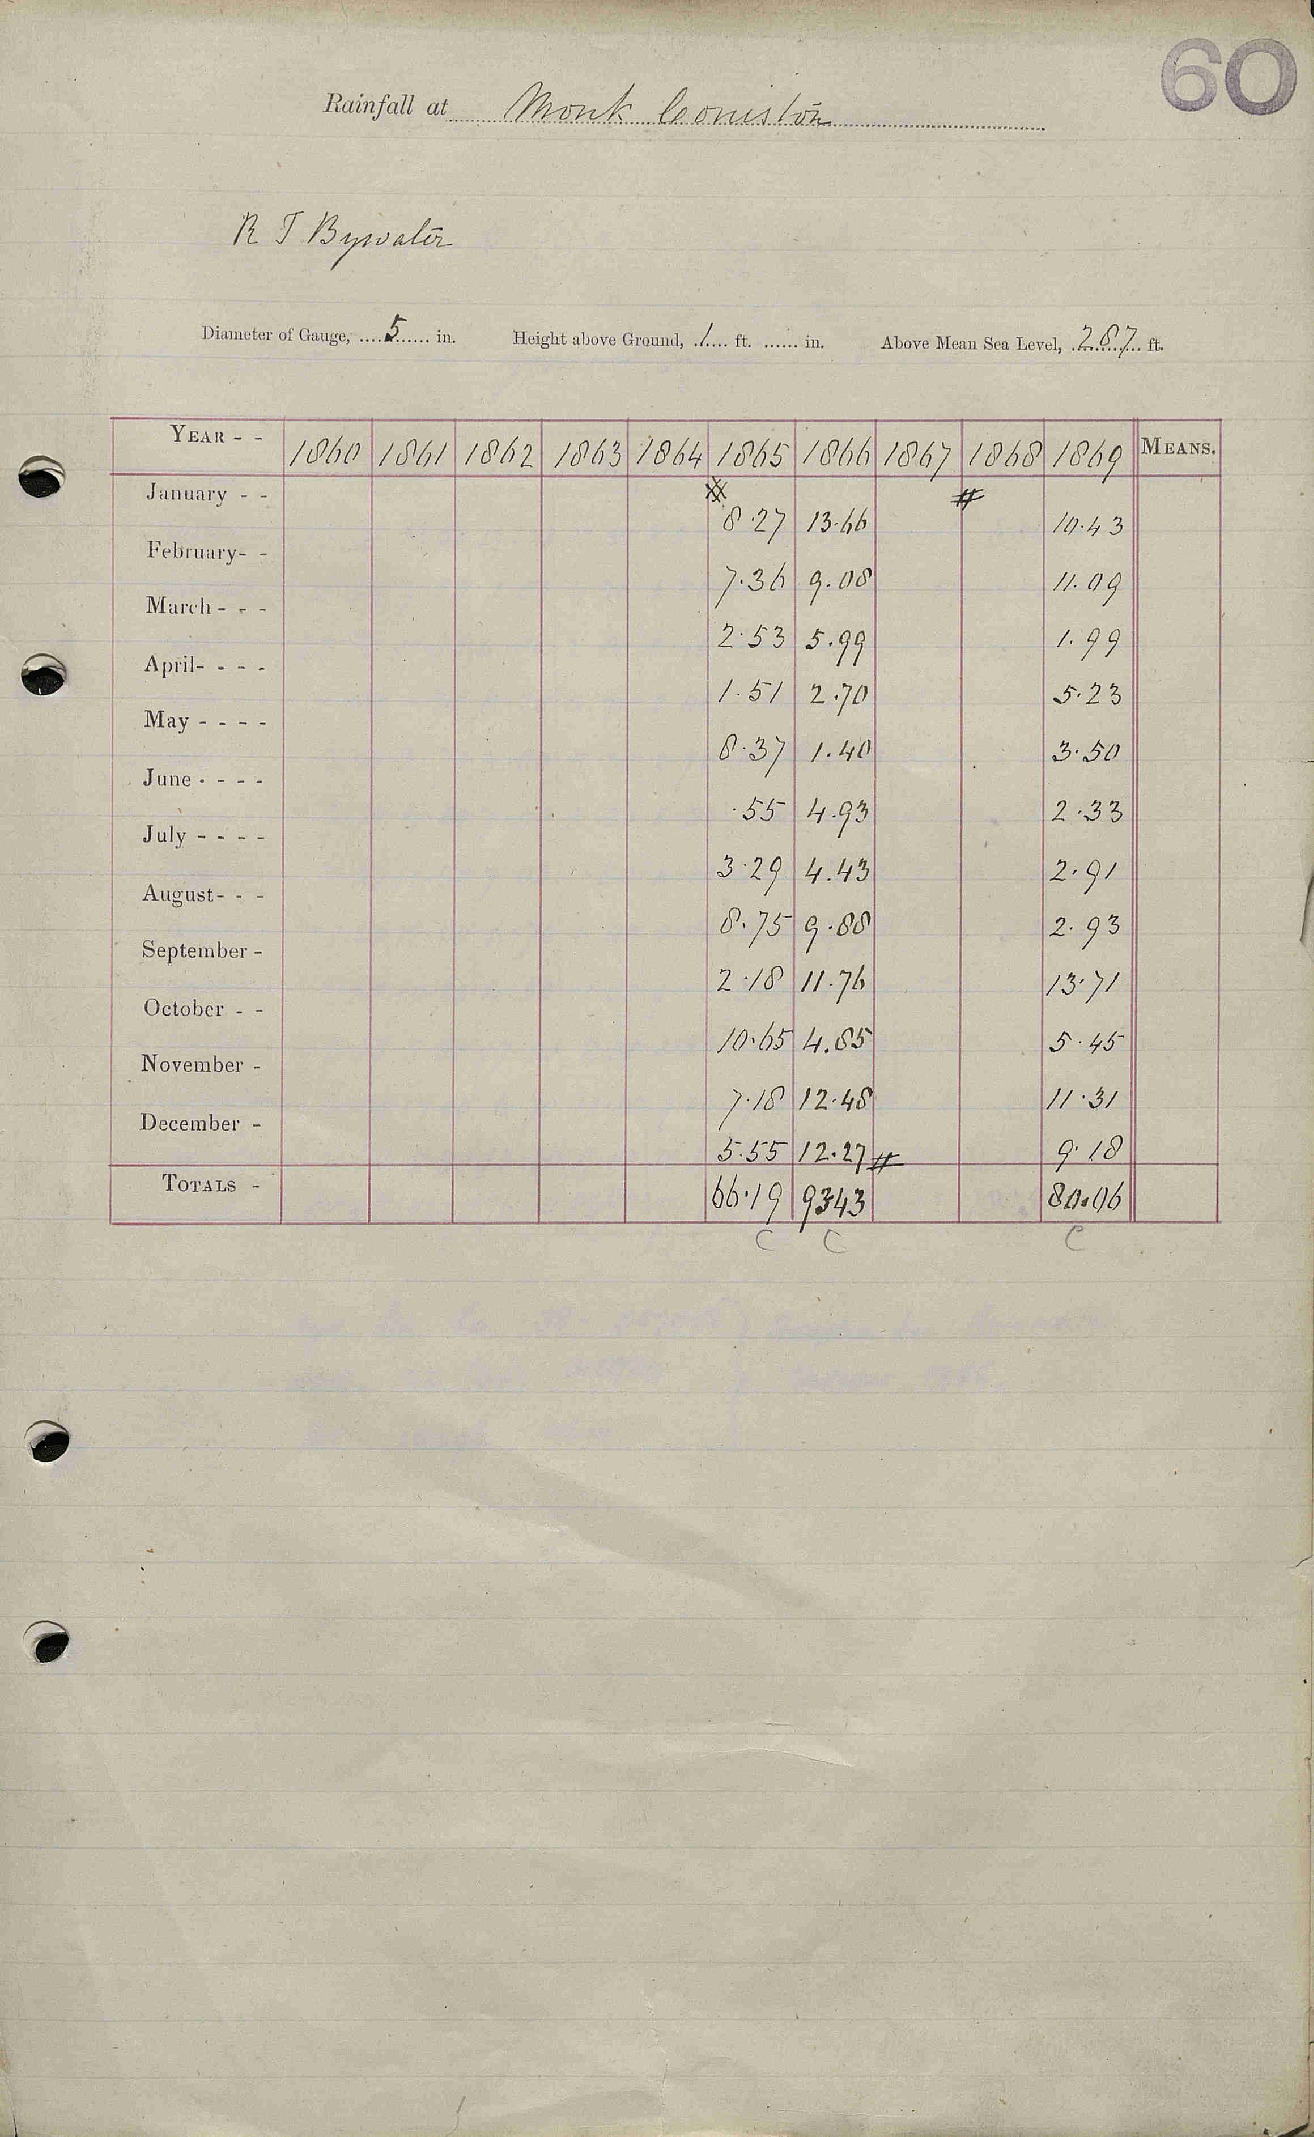 60
Rainfall at Monk Coniston
R T Bywater
Diameter of Gauge, 5 in. Height above Ground, 1 ft. in. Above Mean Sea Level, 287 ft.
YEAR - - 1860 1861 1862 1863 1864 1865 1866 1867 1868 1869 MEANS.
January - - 8.27 13.66 10.43
February - - 7.36 9.08 11.09
March - - - 2.53 5.99 1.99
April - - - - 1.51 2.70 5.23
May - - - - 8.37 1.40 3.50
June - - - - .55 4.93 2.33
July - - - - 3.29 4.43 2.91
August - - - 8.75 9.88 2.93
September - 2.18 11.76 13.71
October - - 10.65 4.85 5.45
November - 7.18 12.48 11.31
December - 5.55 12.27 9.18
TOTALS - 66.19 93.43 80.06
C C C